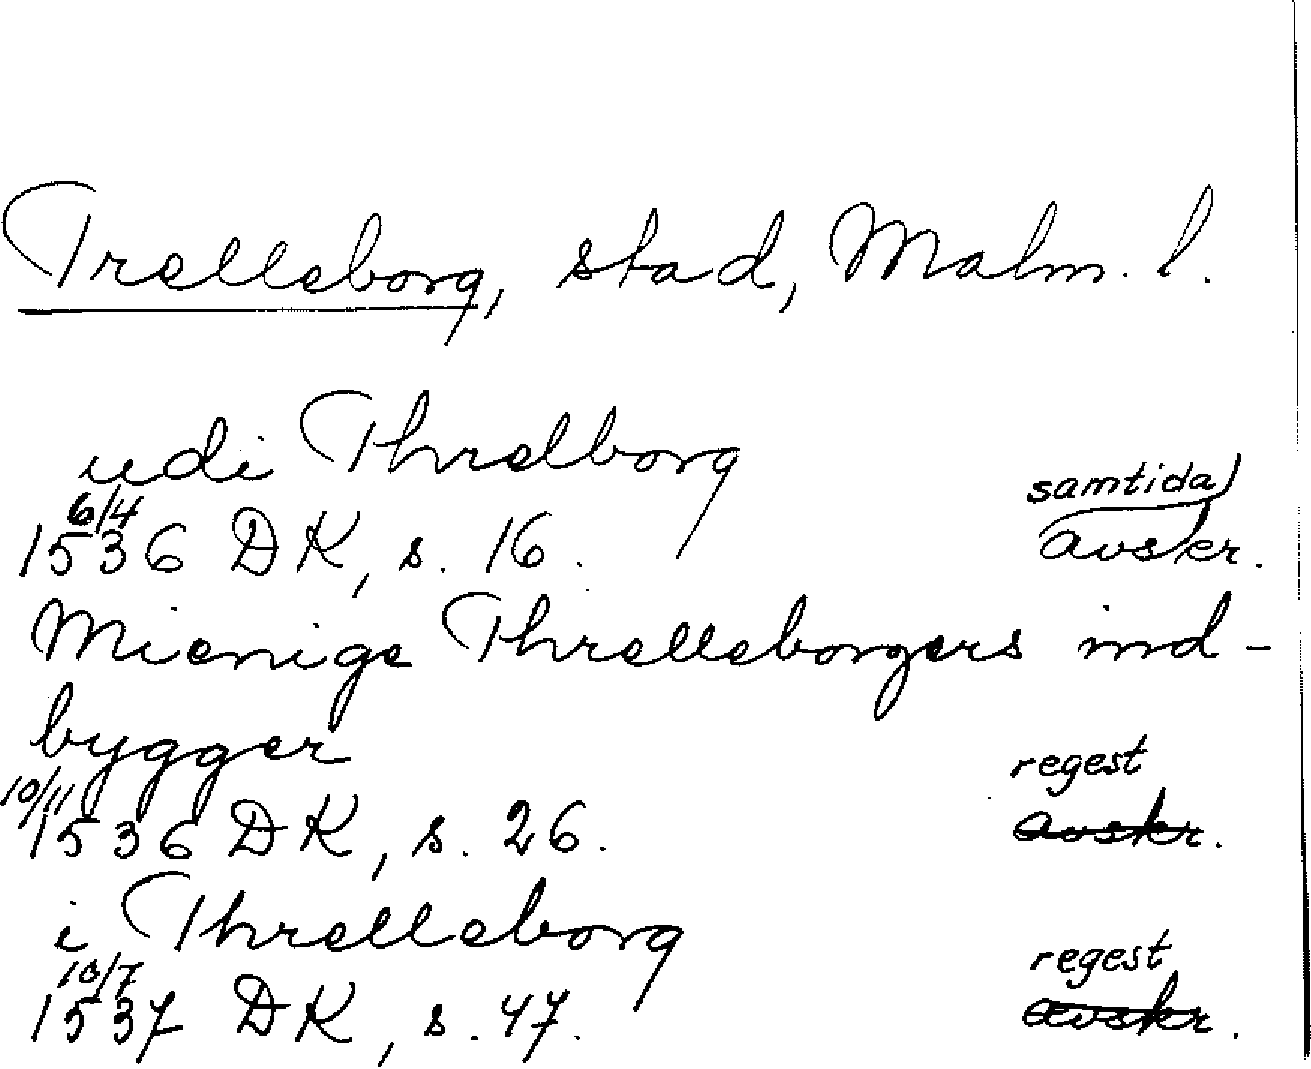 Trelleborg, stad, Malm. l.
udi Threlborg
samtida
6/4
1536 DK, s. 16. avskr.
Mienige Threlleborgers ind-
bygger
regest
10/11
1536 DK, s. 26. avskr.
i Threlleborg
regest
10/7
1537 DK, s. 47. avskr.